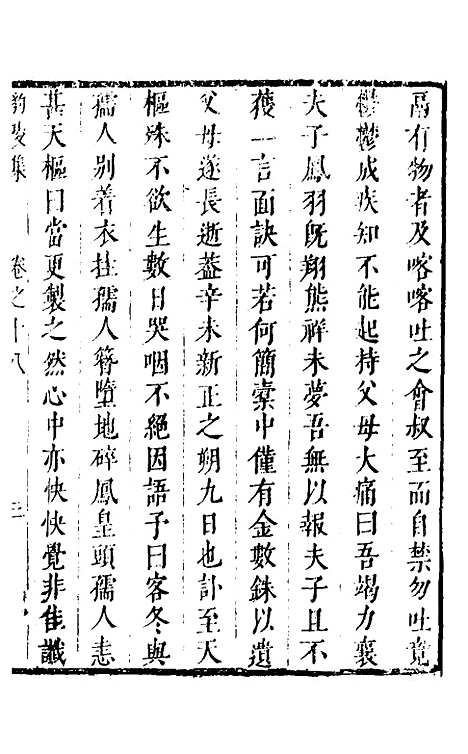 鬲有物者及喀喀吐之會叔至而自禁勿吐竟
鬱鬱成疾知不能起持父母大痛曰吾竭力襄
夫子鳳羽既翔熊祥未夢吾無以報夫子且不
獲一言面訣可若何簡橐中僅有金數銖以遺
父母遂長逝葢辛未新正之朔九日也訃至天
樞殊不欲生數日哭咽不絕因語予曰客冬與
孺人别着衣拄孺人簪墮地碎鳳皇頭孺人恚
甚天樞曰當更製之然心中亦怏怏覺非佳讖
卷之十八
三